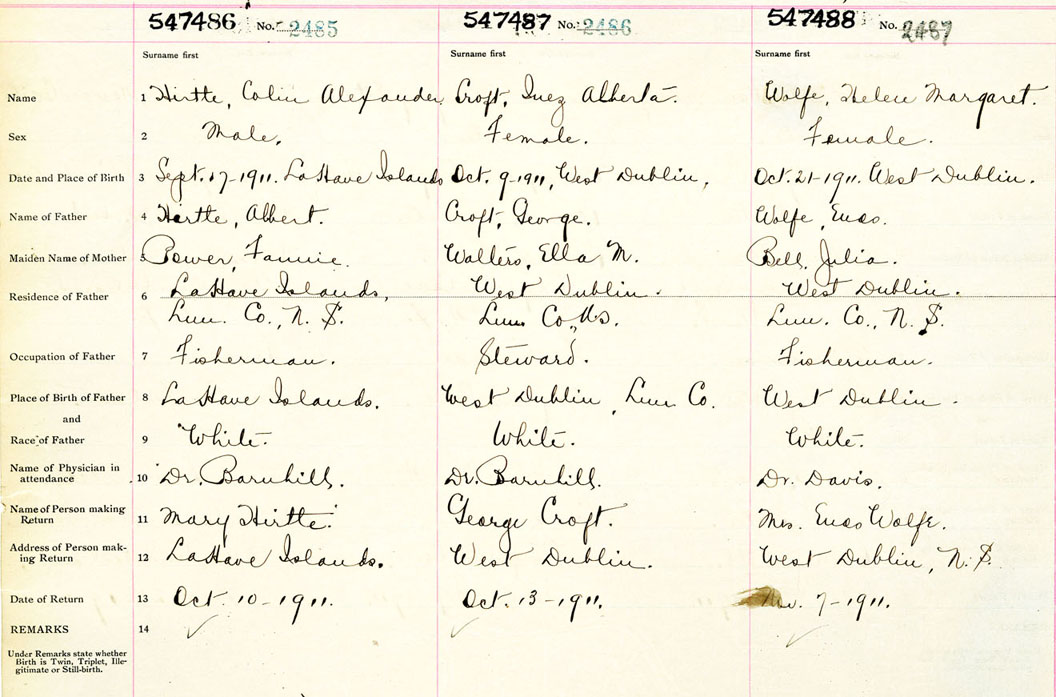 547486 No. 2485 547487 No. 2486 547488 No. 2487
Surname first Surname first Surname first
Name 1 Hirtle, Colin Alexander Croft, Inez Alberta. Wolfe, Helen Margaret.
Sex 2 Male. Female. Female.
Date and Place of Birth 3 Sept. 17-1911. LaHave Islands Oct. 9-1911, West Dublin, Oct. 21-1911. West Dublin.
Name of Father 4 Hirtle, Albert. Croft, George. Wolfe, Enos.
Maiden Name of Mother 5 Power, Fannie. Walters, Ella M. Bell, Julia.
Residence of Father 6 LaHave Islands, West Dublin. West Dublin.
Lun. Co., N. S. Lun. Co., N.S. Lun. Co., N. S.
Occupation of Father 7 Fisherman. Steward. Fisherman.
Place of Birth of Father 8 LaHave Islands. West Dublin, Lun Co. West Dublin.
and
Race of Father 9 White. White. White.
Name of Physician in
attendance 10 Dr. Barnhill. Dr. Barnhill. Dr. Davis.
Name of Person making
Return 11 Mary Hirtle. George Croft. Mrs. Enos Wolfe.
Address of Person mak-
ing Return 12 LaHave Islands. West Dublin. West Dublin, N. S.
Date of Return 13 Oct. 10-1911. Oct. 13-1911. Nov. 7-1911.
REMARKS 14
Under Remarks state whether
Birth is Twin, Triplet, Ille-
gitimate or Still-birth.